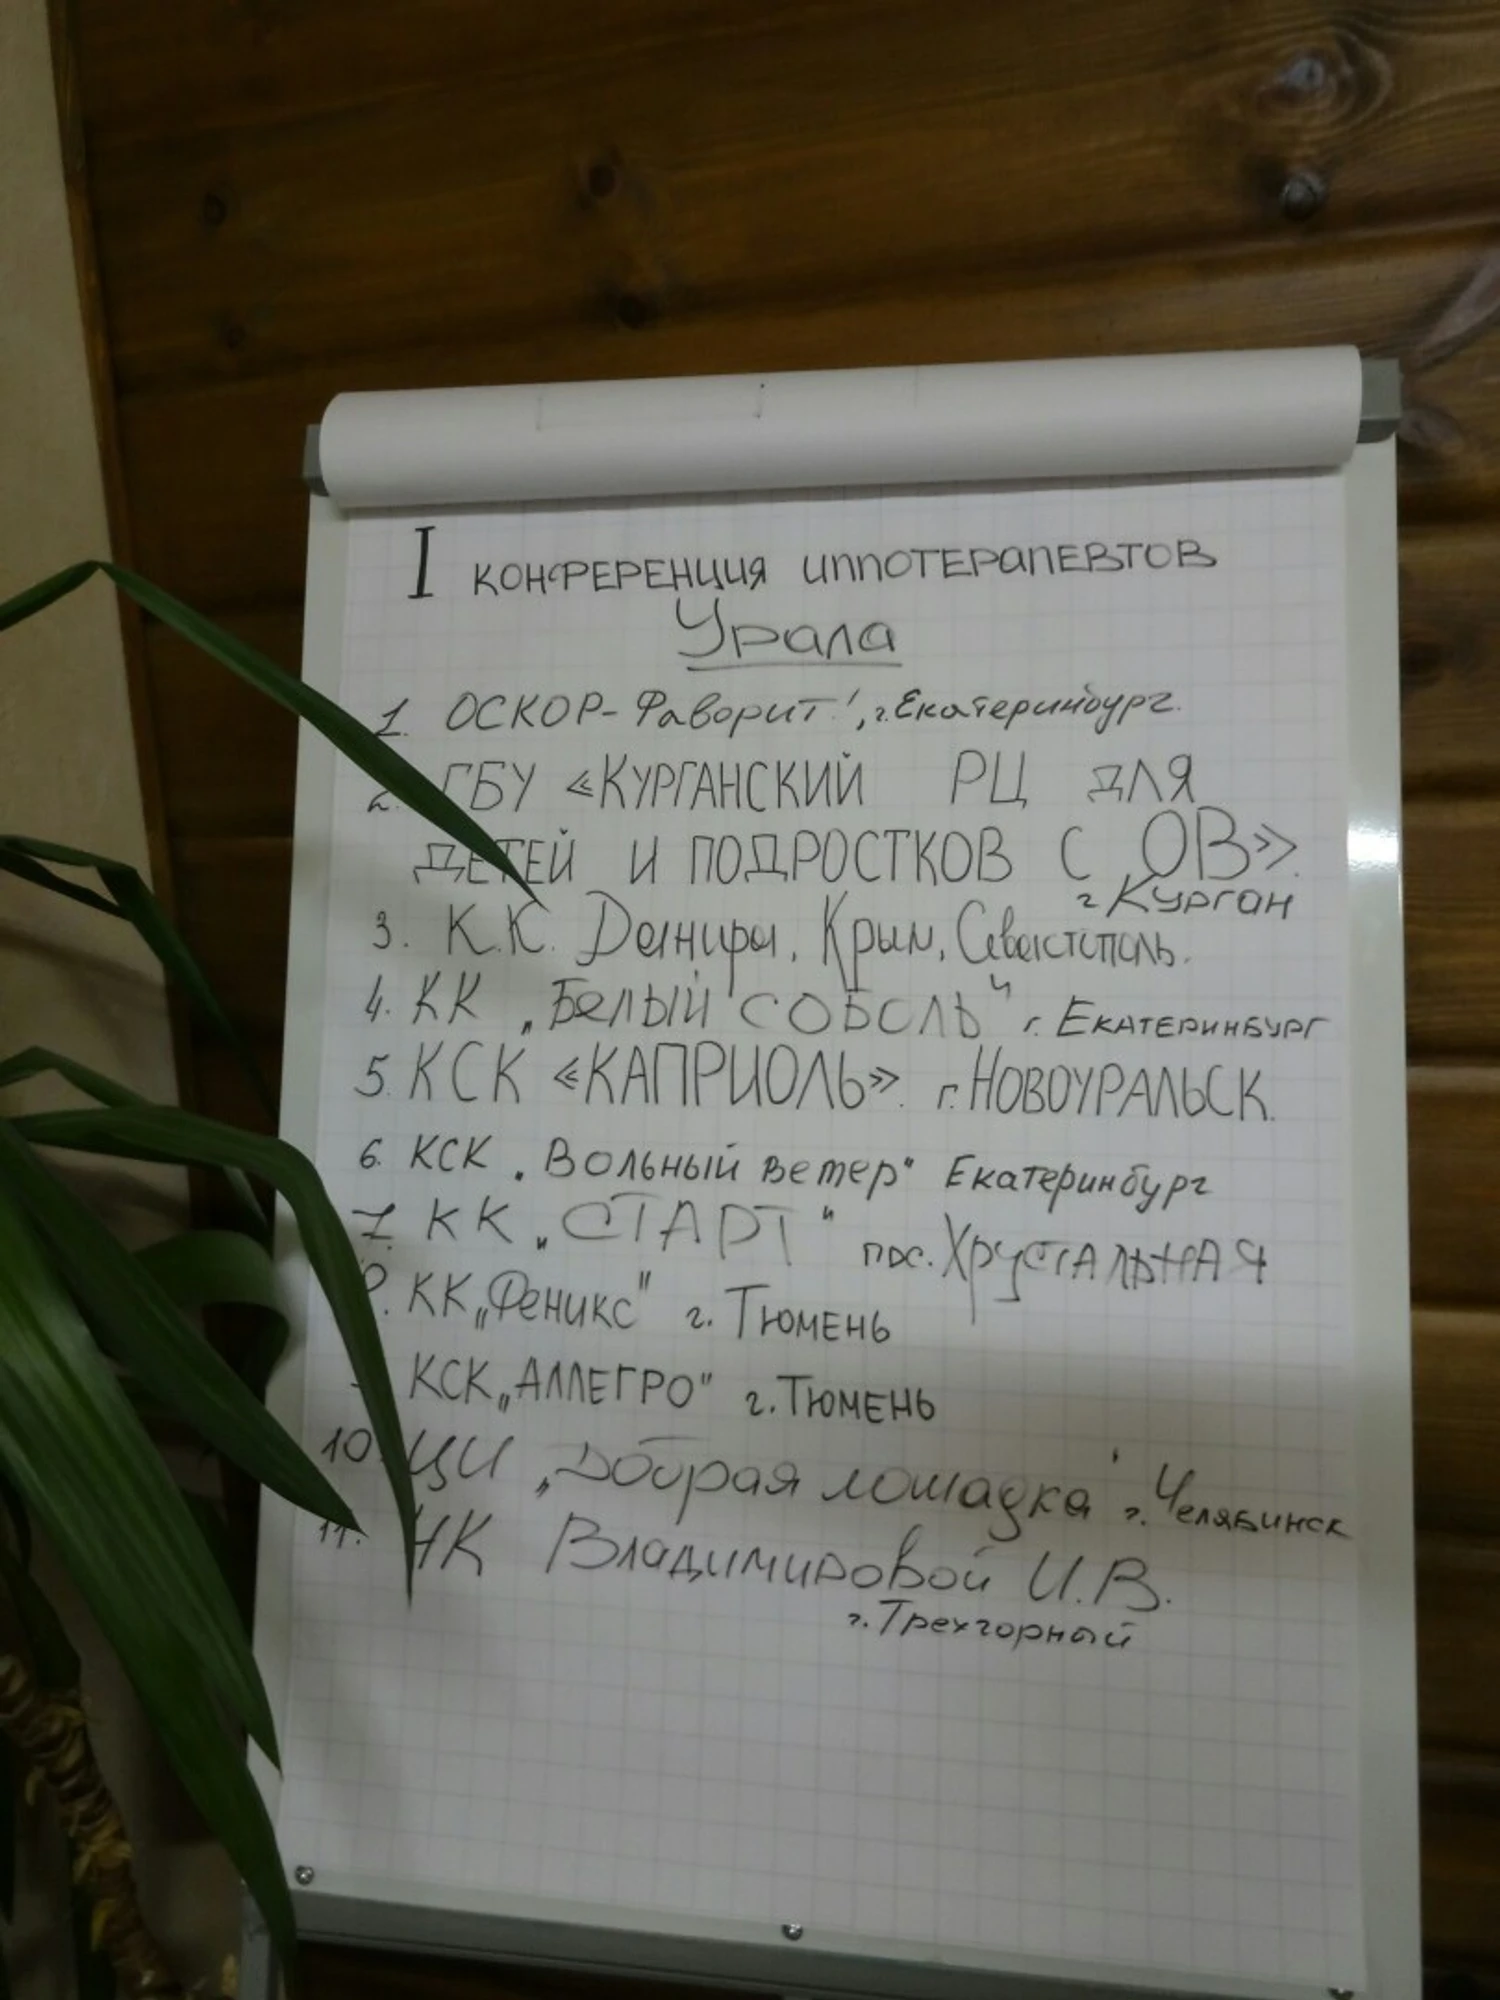 I КОНФЕРЕНЦИЯ ИППОТЕРАПЕВТОВ
Урала
1. ОСКОР-Фаворит!, г. Екатеринбург.
2. ГБУ «КУРГАНСКИЙ РЦ ДЛЯ
ДЕТЕЙ И ПОДРОСТКОВ С ОВ».
г Курган
3. К.К. Крым, Севастополь.
4. КК „БЕЛЫЙ СОБОЛЬ" г. ЕКАТЕРИНБУРГ
5. КСК «КАПРИОЛЬ». г. НОВОУРАЛЬСК.
6. КСК „Вольный ветер" Екатеринбург
7. КК „СТАРТ" пос. ХРУСТАЛЬНАЯ
КК „Феникс" г. ТЮМЕНЬ
КСК „АЛЛЕГРО" г. ТЮМЕНЬ
10. ЦИ „Добрая лошадка" г. Челябинск
11. ЧК Владимировой И.В.
г. Трехгорный